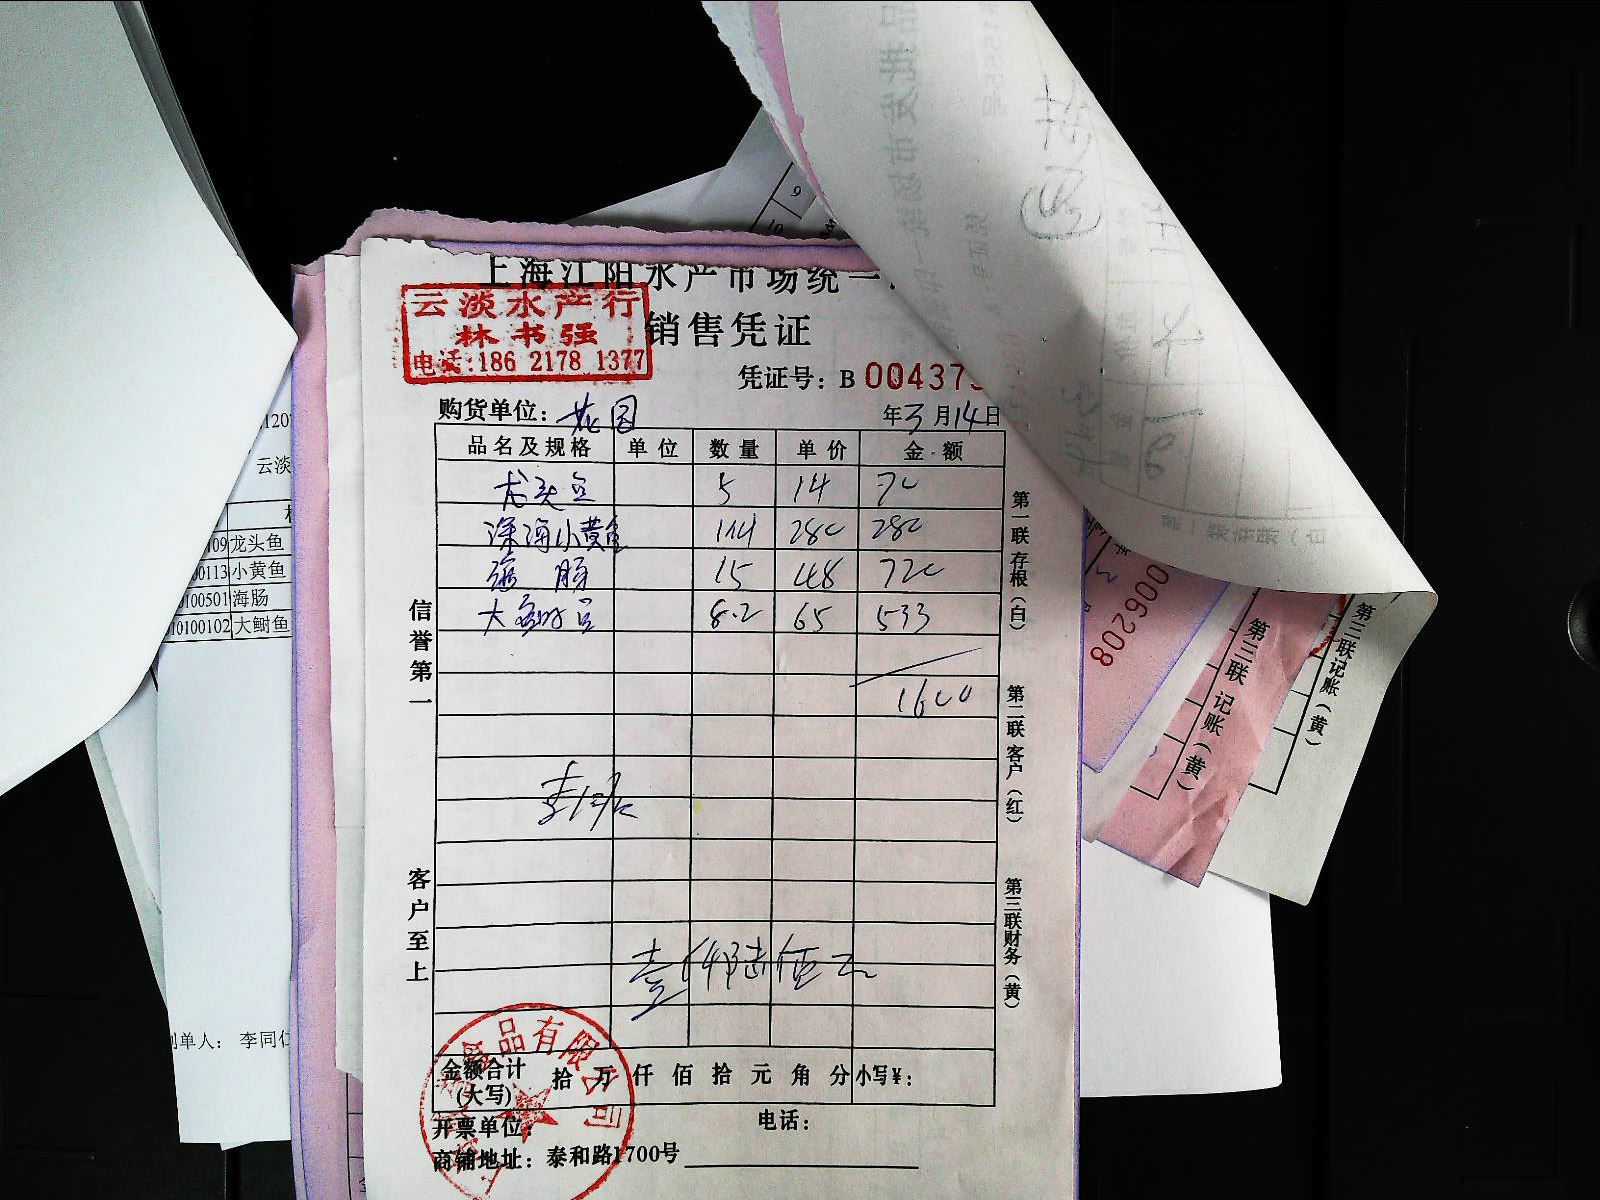 上海江阳水产市场统一
云淡水产行
林书强
电话:186 2178 1377
销售凭证
凭证号：B 00437
购货单位：花园
年3月14日
品名及规格 单位 数量 单价 金额
龙头鱼 5 14 70
深海小黄鱼 280 280
海肠 15 48 720
大鲥鱼 8.2 65 533
1600
李同仁
壹仟陆佰元
信誉第一
客户至上
第一联 存根（白）
第二联 客户（红）
第三联 财务（黄）
金额合计(大写) 拾 万 仟 佰 拾 元 角 分 小写¥：
开票单位：
电话：
商铺地址：泰和路1700号
食品有限公司
云淡
109 龙头鱼
00113 小黄鱼
0100501 海肠
010100102 大鲥鱼
制单人： 李同仁
9
10
006208
第三联 记账（黄）
第三联 记账（黄）